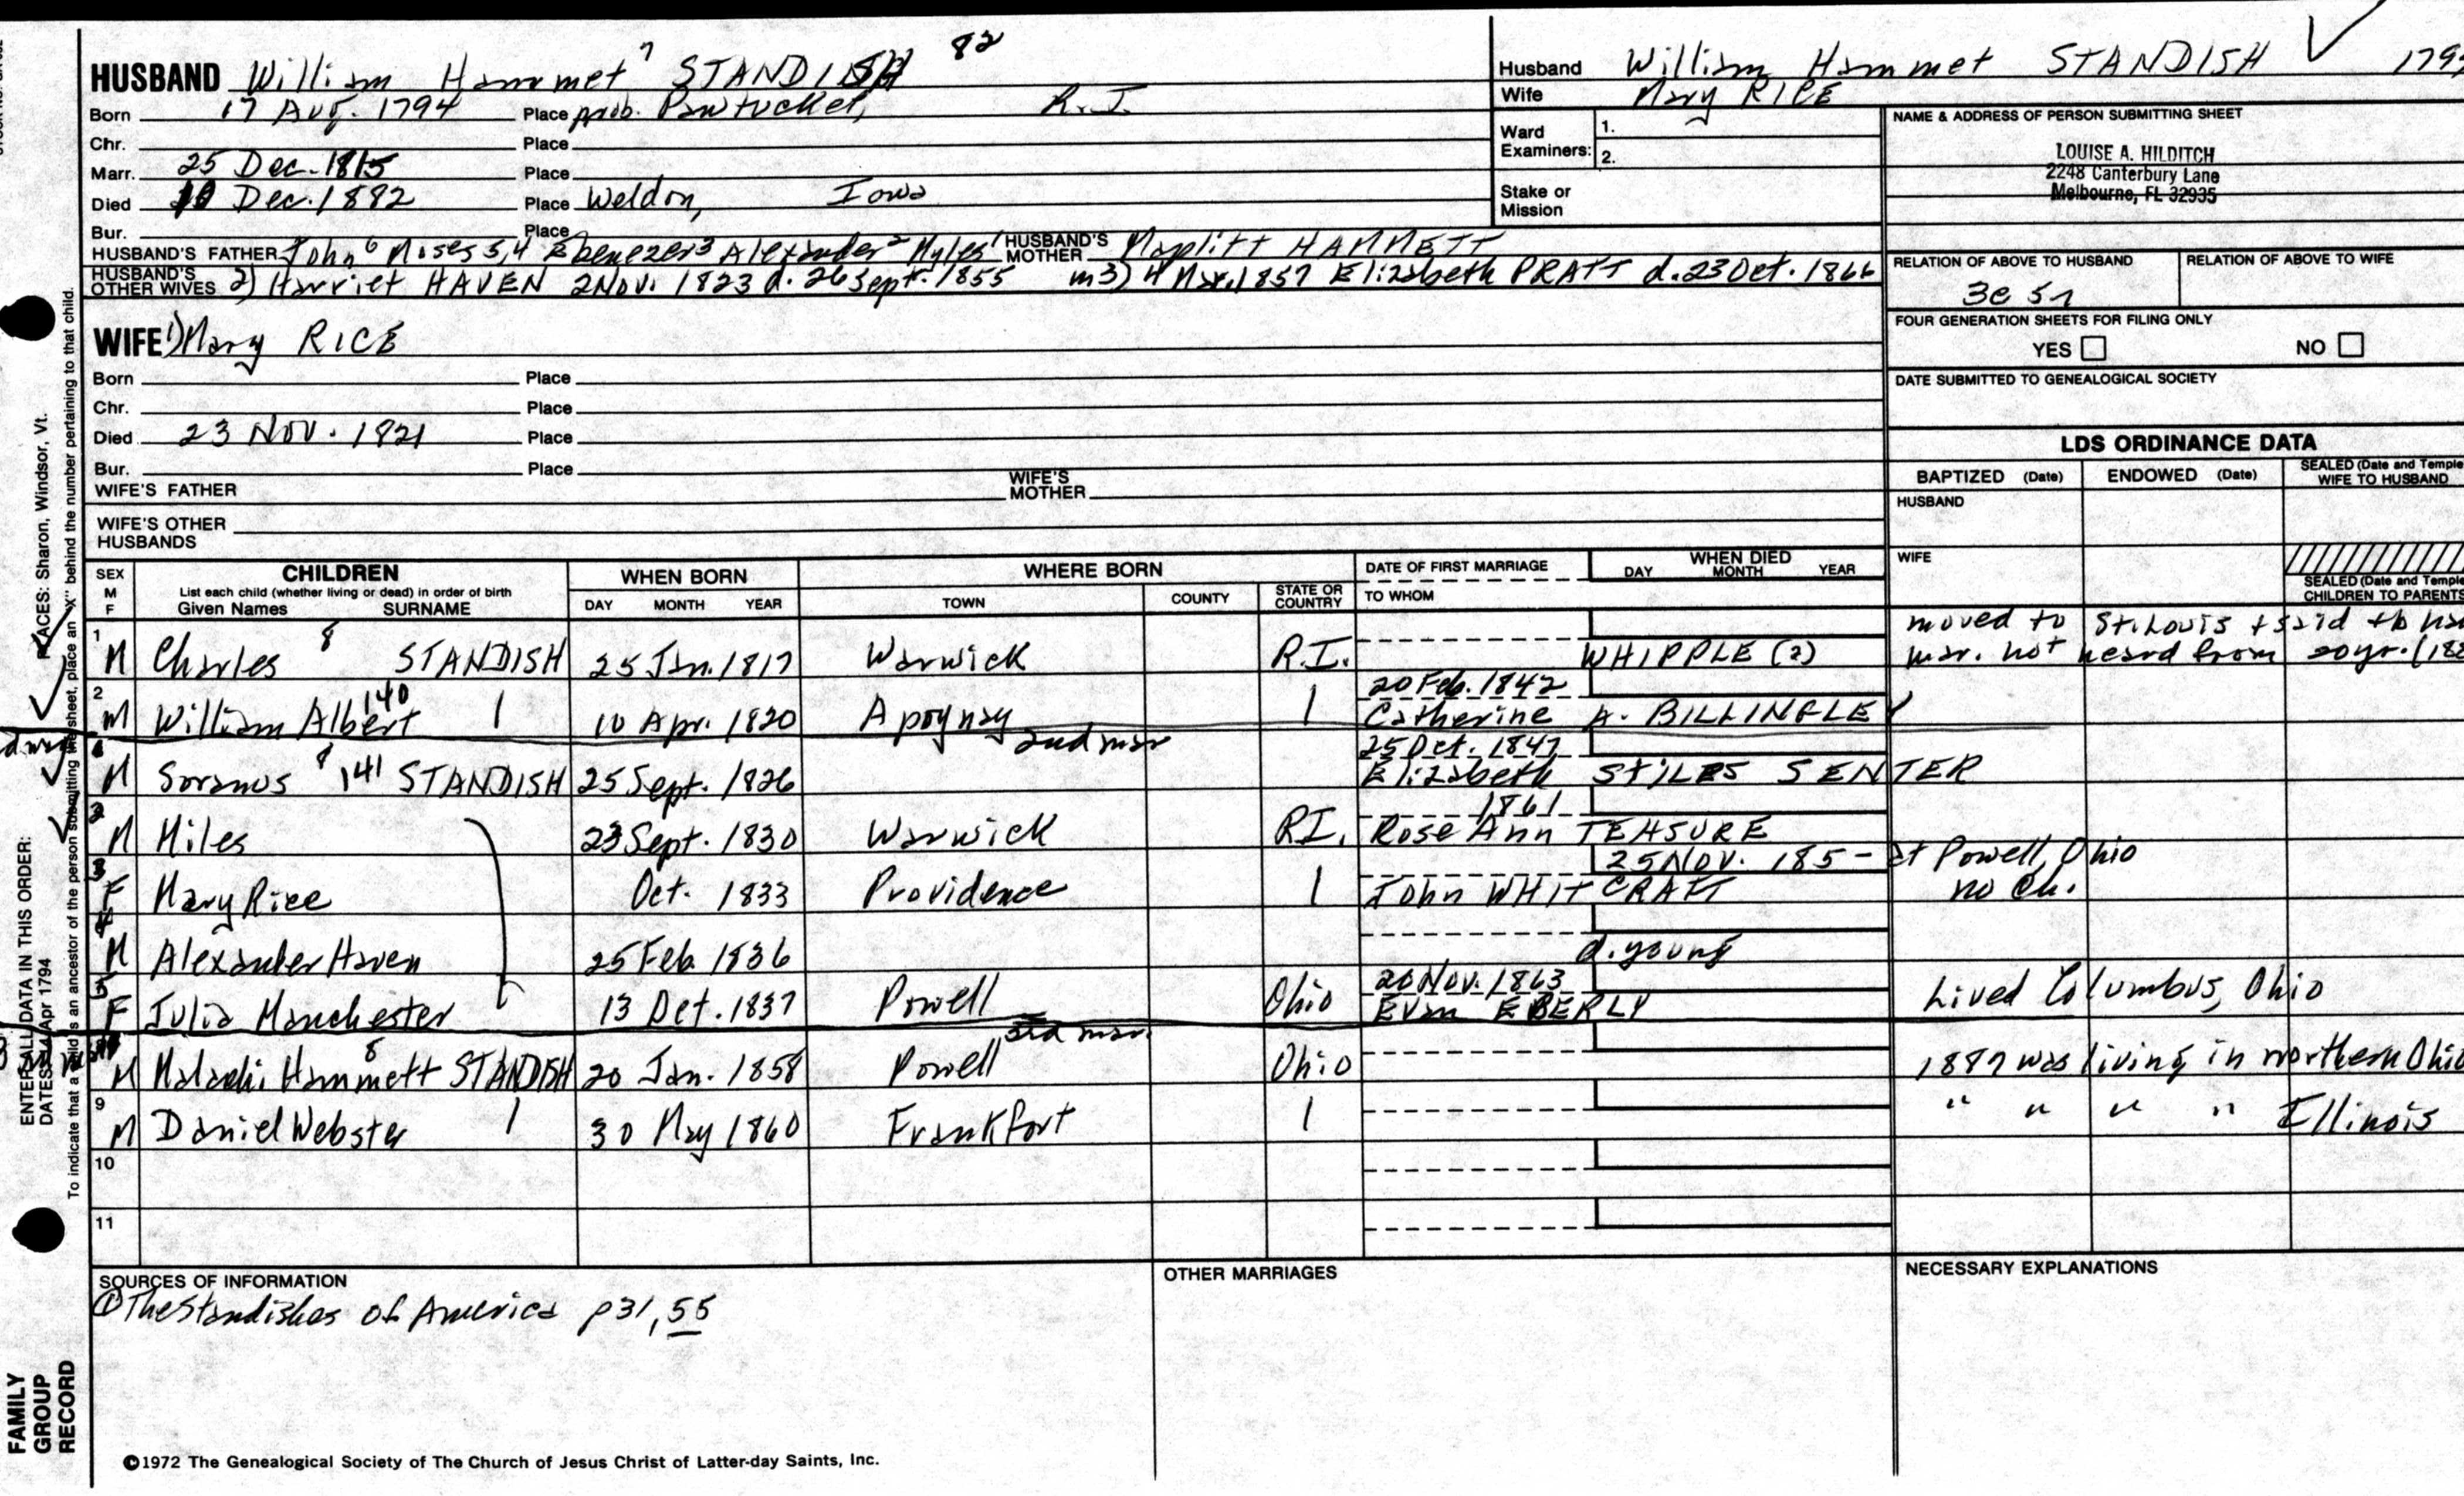 HUSBAND William Hammet 7 STANDISH 82
Born 17 Aug. 1794 Place prob. Pawtucket, R.I.
Chr. Place
Marr. 25 Dec. 1815 Place
Died 10 Dec. 1882 Place Weldon, Iowa
Bur. Place
HUSBAND'S FATHER John 6 Moses 5,4 Ebenezer 3 Alexander 2 Myles 1 HUSBAND'S MOTHER HAMMETT
HUSBAND'S OTHER WIVES 2) Harriet HAVEN 2 Nov. 1823 d. 26 Sept. 1855 m3) 4 Mar. 1857 Elizabeth PRATT d. 23 Oct. 1866
Husband William Hammet STANDISH
Wife Mary RICE
Ward Examiners: 1.
2.
Stake or Mission
NAME & ADDRESS OF PERSON SUBMITTING SHEET
LOUISE A. HILDITCH
2248 Canterbury Lane
Melbourne, FL 32935
RELATION OF ABOVE TO HUSBAND RELATION OF ABOVE TO WIFE
FOUR GENERATION SHEETS FOR FILING ONLY
YES NO
DATE SUBMITTED TO GENEALOGICAL SOCIETY
WIFE 1) Mary RICE
Born Place
Chr. Place
Died 23 Nov. 1821 Place
Bur. Place
WIFE'S FATHER WIFE'S MOTHER
WIFE'S OTHER HUSBANDS
LDS ORDINANCE DATA
BAPTIZED (Date) ENDOWED (Date) SEALED (Date and Temple WIFE TO HUSBAND
HUSBAND
WIFE
SEALED (Date and Temple CHILDREN TO PARENTS
SEX M F CHILDREN WHEN BORN WHERE BORN DATE OF FIRST MARRIAGE WHEN DIED
List each child (whether living or dead) in order of birth
Given Names SURNAME DAY MONTH YEAR TOWN COUNTY STATE OR COUNTRY TO WHOM DAY MONTH YEAR
1 M Charles 8 STANDISH 25 Jan. 1817 Warwick R.I. WHIPPLE (2) moved to St. Louis
mar. not heard from 20 yr.
20 Feb. 1842
2 M William Albert 140 10 Apr. 1820 Catherine A. BILLINGLEY
2nd mar
25 Oct. 1847
M Soranus 8 141 STANDISH 25 Sept. 1826 Elizabeth STILES SENTER
1861
2 M Miles 23 Sept. 1830 Warwick R.I. Rose Ann TEASURE
25 Nov. 185- at Powell, Ohio
3 F Mary Rice Oct. 1833 Providence John WHITCRAFT no ch.
4 M Alexander Haven 25 Feb. 1836 d. young
20 Nov. 1863
5 F Julia Manchester 13 Oct. 1837 Powell Ohio Evan EBERLY Lived Columbus, Ohio
3rd mar.
M Malachi Hammett 8 STANDISH 20 Jan. 1858 Powell Ohio 1887 was living in northern Ohio
9 M Daniel Webster 30 May 1860 Frankfort " " " " Illinois
10
11
SOURCES OF INFORMATION
① The Standishes of America p31, 55
OTHER MARRIAGES
NECESSARY EXPLANATIONS
©1972 The Genealogical Society of The Church of Jesus Christ of Latter-day Saints, Inc.
FAMILY GROUP RECORD
ENTER ALL DATA IN THIS ORDER:
DATES: Apr 1794
PLACES: Sharon, Windsor, Vt.
To indicate that a child is an ancestor of the person submitting the sheet, place an "X" behind the number pertaining to that child.